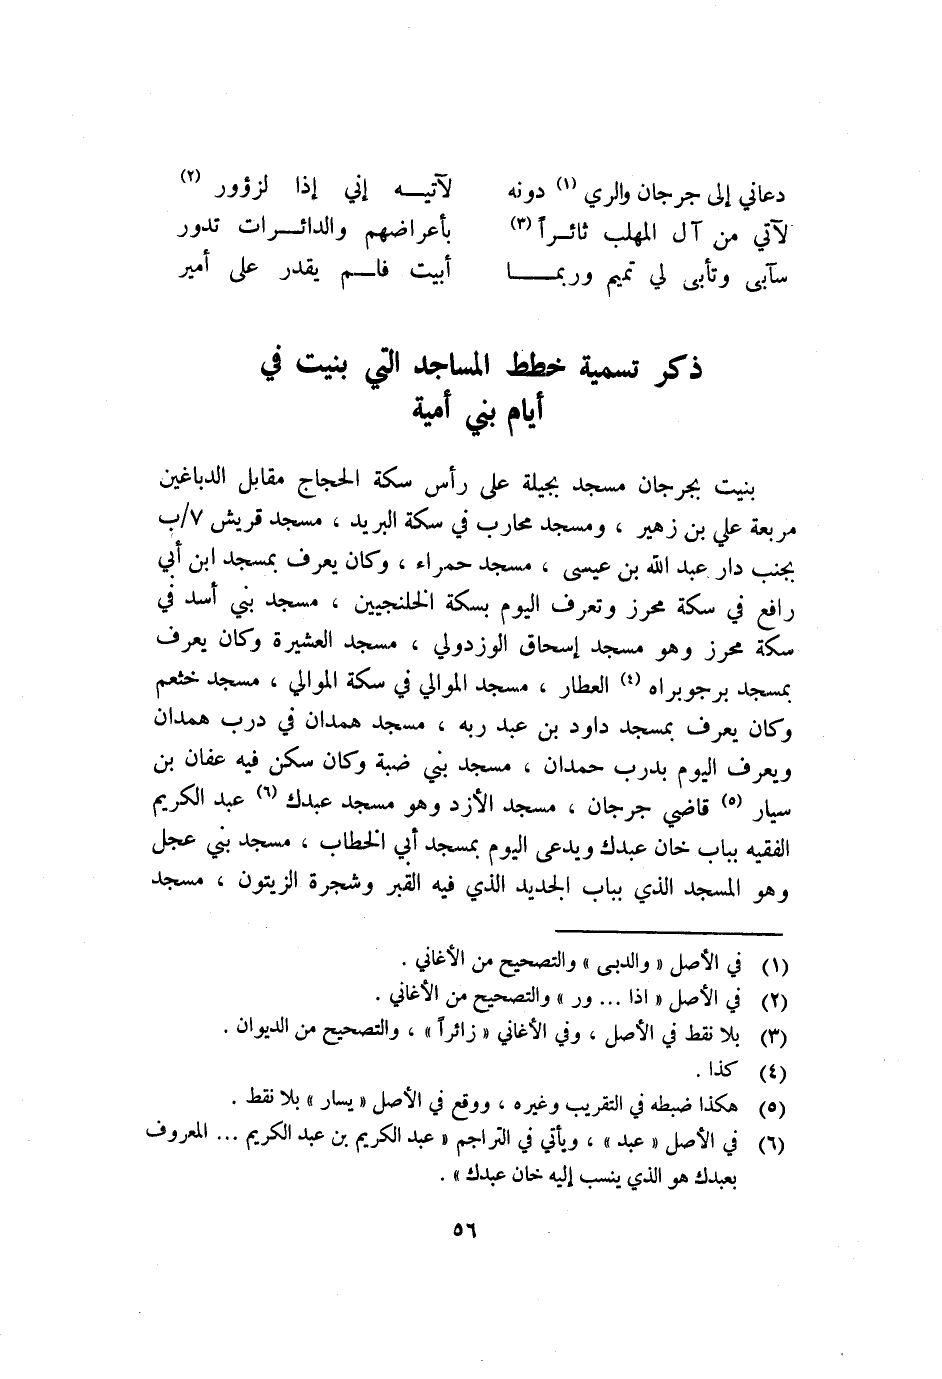 دعاني إلى جرجان والري (١) دونه لآتيـــه إني إذا لزؤور (٢)
لآتي من آل المهلب ثائـراً (٣) بأعراضهم والدائـــرات تدور
سآبى وتأبى لي تميم وربمـــــا أبيت فلـــم يقدر على أمير
ذكر تسمية خطط المساجد التي بنيت في
أيام بني أمية
بنيت بجرجان مسجد بجيلة على رأس سكة الحجاج مقابل الدباغين
مربعة علي بن زهير ، ومسجد محارب في سكة البريد ، مسجد قريش ٧/ب
بجنب دار عبد الله بن عيسى ، مسجد حمراء ، وكان يعرف بمسجد ابن أبي
رافع في سكة محرز وتعرف اليوم بسكة الخلنجيين ، مسجد بني أسد في
سكة محرز وهو مسجد إسحاق الوزدولي ، مسجد العشيرة وكان يعرف
بمسجد برجوبراه (٤) العطار ، مسجد الموالي في سكة الموالي ، مسجد خثعم
وكان يعرف بمسجد داود بن عبد ربه ، مسجد همدان في درب همدان
ويعرف اليوم بدرب حمدان ، مسجد بني ضبة وكان سكن فيه عفان بن
سيار (٥) قاضي جرجان ، مسجد الأزد وهو مسجد عبدك (٦) عبد الكريم
الفقيه بباب خان عبدك ويدعى اليوم بمسجد أبي الخطاب ، مسجد بني عجل
وهو المسجد الذي بباب الجديد الذي فيه القبر وشجرة الزيتون ، مسجد
(١) في الأصل « والدبى » والتصحيح من الأغاني .
(٢) في الأصل « اذا ... ور » والتصحيح من الأغاني .
(٣) بلا نقط في الأصل ، وفي الأغاني « زائراً » ، والتصحيح من الديوان .
(٤) كذا .
(٥) هكذا ضبطه في التقريب وغيره ، ووقع في الأصل « يسار » بلا نقط .
(٦) في الأصل « عبد » ، ويأتي في التراجم « عبد الكريم بن عبد الكريم ... المعروف
بعبدك هو الذي ينسب إليه خان عبدك » .
٥٦